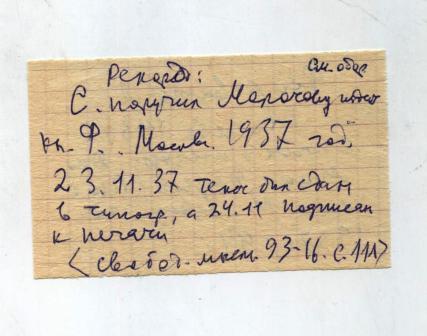 Рекорд: См. обор
С. поручил Молочову издат
кн. Ф.. Москва. 1937 год,
23.11.37 текст был сдан
в типогр, а 24.11 подписан
к печати
<свобод. мысл. 93-16. с. 111>